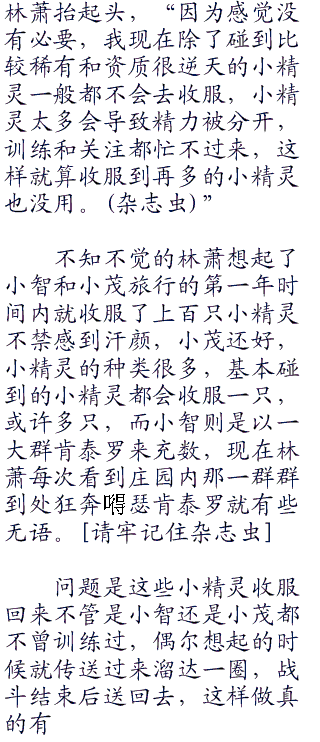 林萧抬起头，“因为感觉没
有必要，我现在除了碰到比
较稀有和资质很逆天的小精
灵一般都不会去收服，小精
灵太多会导致精力被分开，
训练和关注都忙不过来，这
样就算收服到再多的小精灵
也没用。(杂志虫)”
不知不觉的林萧想起了
小智和小茂旅行的第一年时
间内就收服了上百只小精灵
不禁感到汗颜，小茂还好，
小精灵的种类很多，基本碰
到的小精灵都会收服一只，
或许多只，而小智则是以一
大群肯泰罗来充数，现在林
萧每次看到庄园内那一群群
到处狂奔瑟肯泰罗就有些
无语。[请牢记住杂志虫]
问题是这些小精灵收服
回来不管是小智还是小茂都
不曾训练过，偶尔想起的时
候就传送过来溜达一圈，战
斗结束后送回去，这样做真
的有